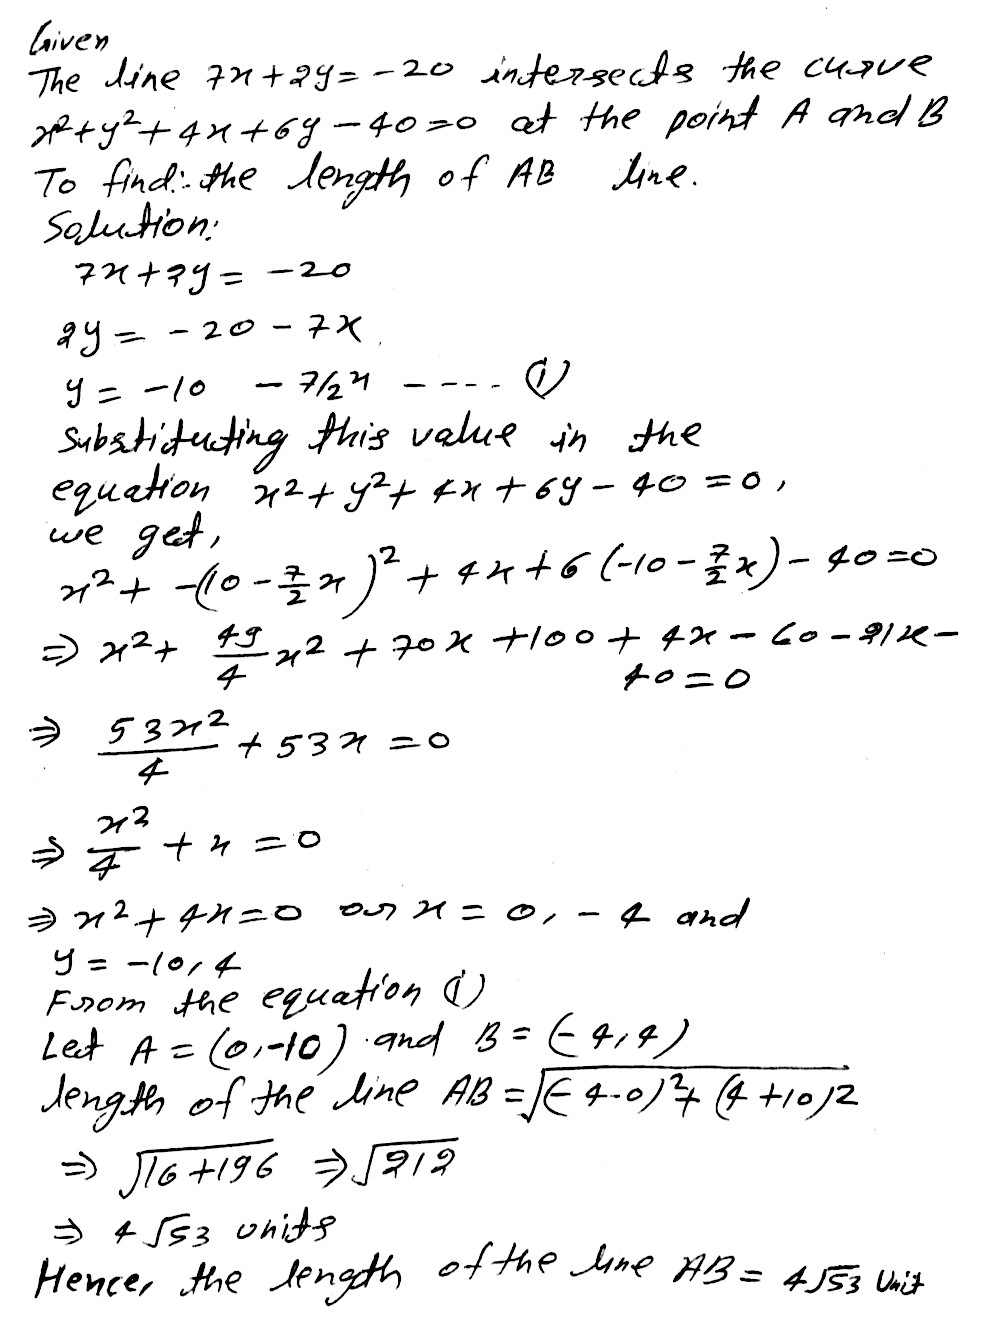 Given
The line 7x+2y = -20 intersects the curve
x²+y²+4x+6y-40=0 at the point A and B
To find:- the length of AB line.
Solution:
7x+2y = -20
2y = -20-7x
y = -10 - 7/2x ----- (1)
Substituting this value in the
equation x²+y²+4x+6y-40=0,
we get,
x²+ -(10-7/2x)²+4x+6(-10-7/2x)-40=0
⇒ x²+ 49/4 x²+70x+100+4x-60-21x-
40=0
⇒ 53x²/4 +53x=0
⇒ x²/4 +x=0
⇒ x²+4x=0 or x=0,-4 and
y = -10,4
From the equation (1)
Let A=(0,-10) and B=(-4,4)
length of the line AB=√(-4-0)²+(4+10)2
⇒ √16+196 ⇒ √212
⇒ 4√53 units
Hence, the length of the line AB = 4√53 Unit